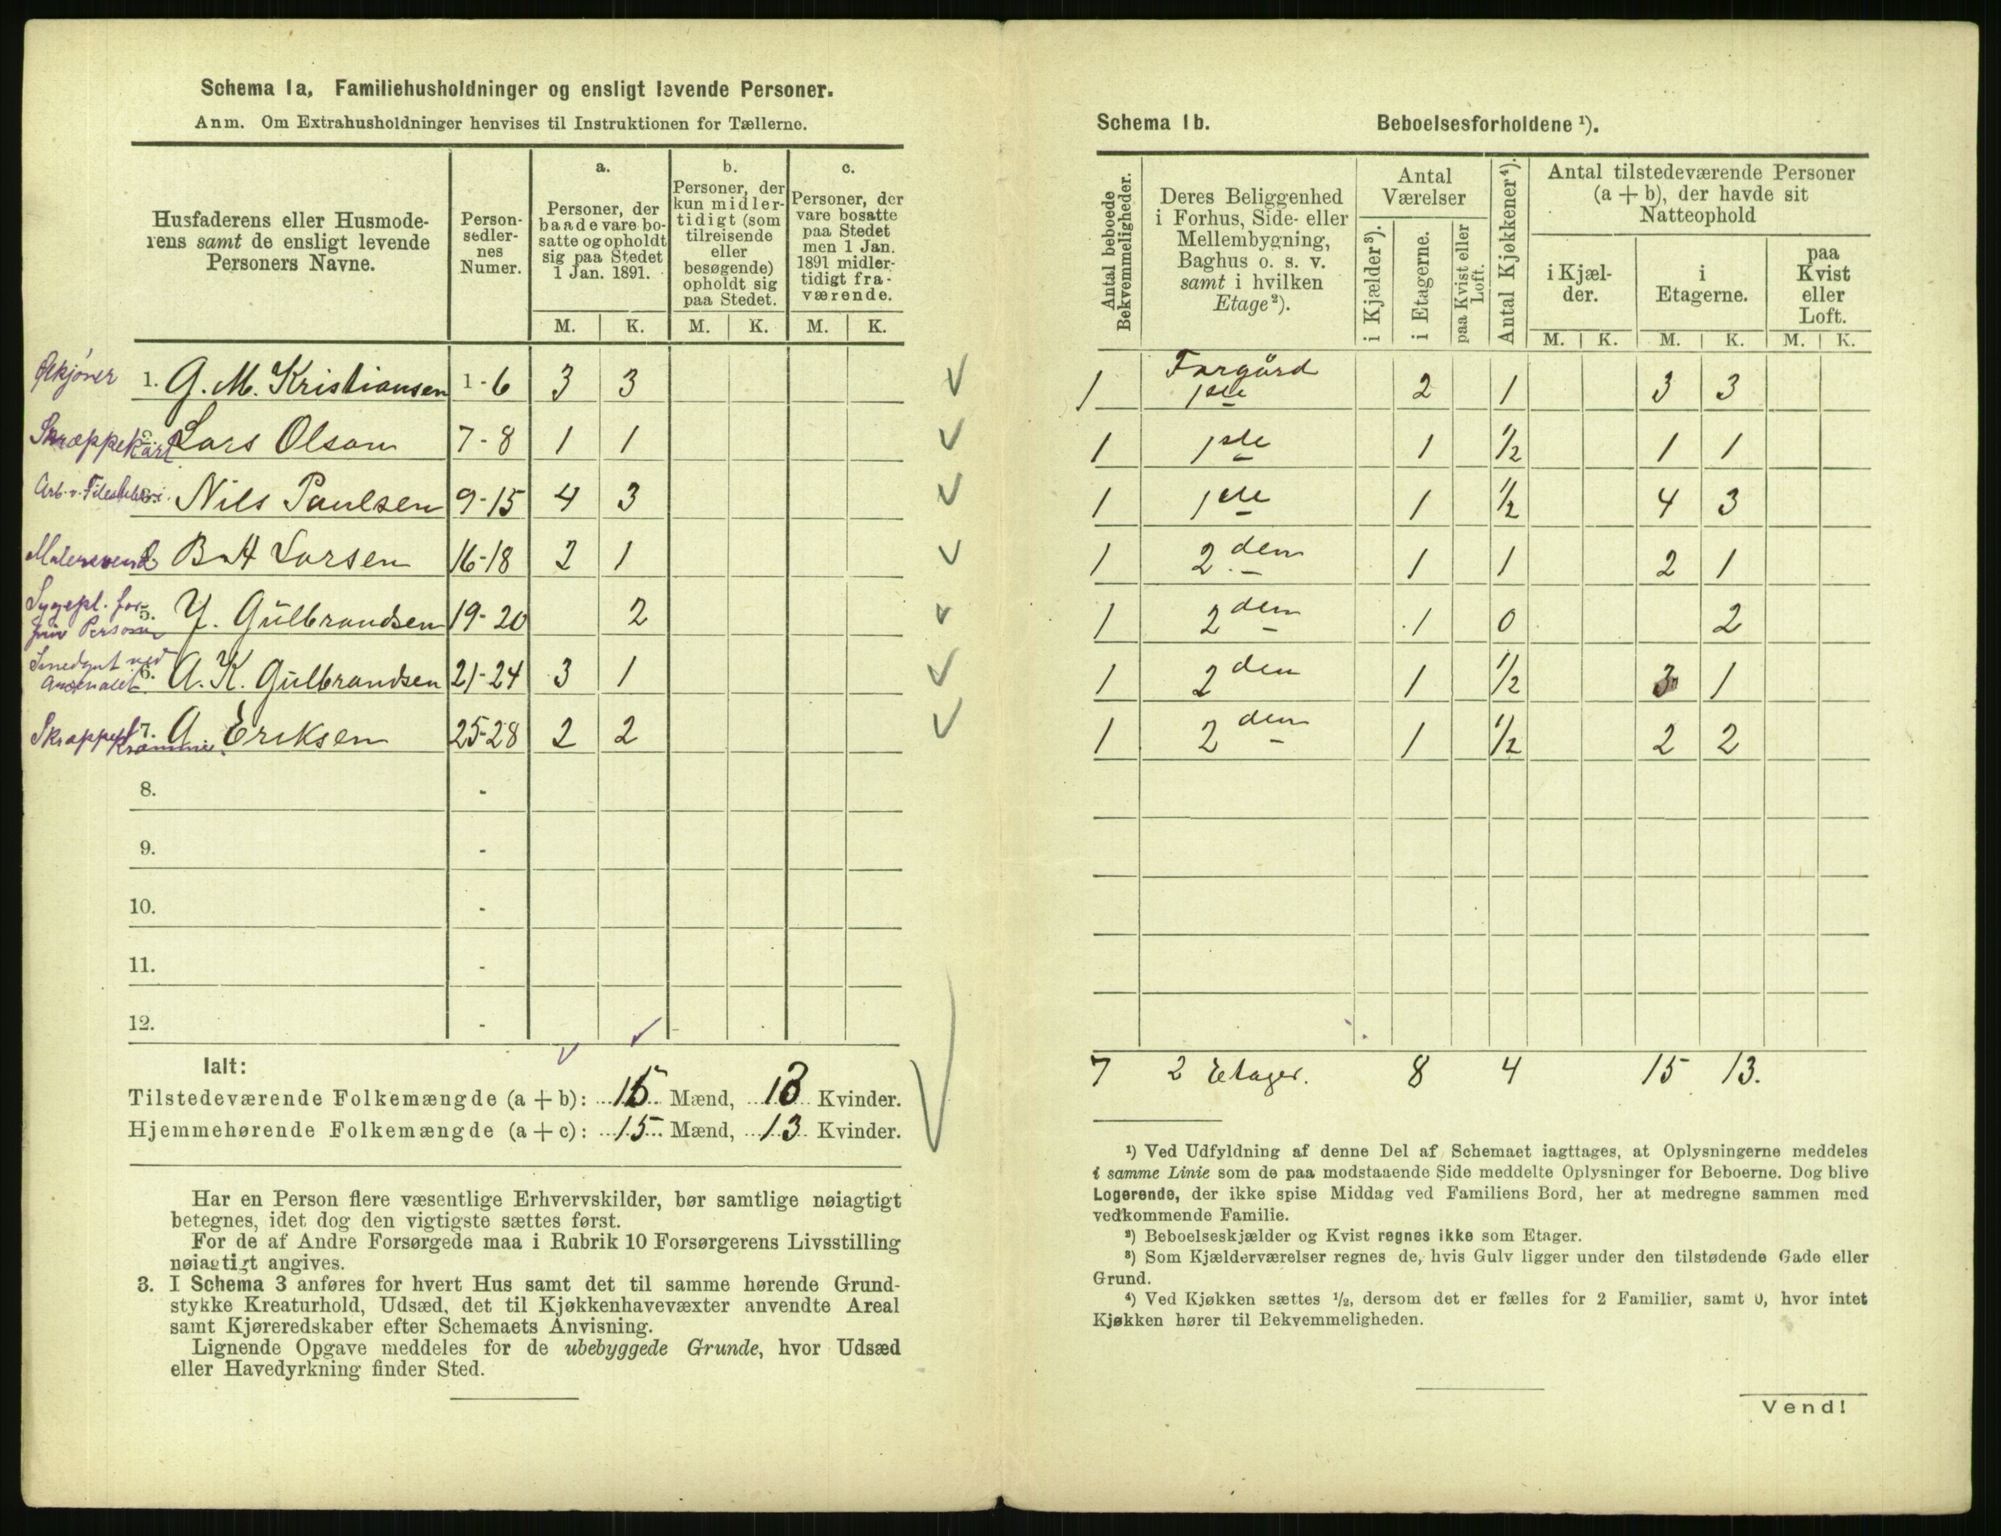 Schema 1a, Familiehusholdninger og ensligt levende Personer.
Anm. Om Extrahusholdninger henvises til Instruktionen for Tællerne.
Husfaderens eller Husmoderens samt de ensligt levende Personers Navne.
Personsedlernes Numer.
a.
Personer, der baade vare bosatte og opholdt sig paa Stedet 1 Jan. 1891.
b.
Personer, der kun midlertidigt (som tilreisende eller besøgende) opholdt sig paa Stedet.
c.
Personer, der vare bosatte paa Stedet men 1 Jan. 1891 midlertidigt fraværende.
M. K. M. K. M. K.
Ølkjører 1. G. M. Kristiansen 1-6 3 3
Skræppekarl Lars Olson 7-8 1 1
Nils Paulsen 9-15 4 3
Malersvend B. H Larsen 16-18 2 1
Sygepl. for
priv Personer 5. Y. Gülbrandsen 19-20 2
ved
6. A. K. Gülbrandsen 21-24 3 1
7. A Eriksen 25-28 2 2
8. -
9. -
10. -
11. -
12. -
Ialt:
Tilstedeværende Folkemængde (a + b): 15 Mænd, 13 Kvinder.
Hjemmehørende Folkemængde (a + c): 15 Mænd, 13 Kvinder.
Har en Person flere væsentlige Erhvervskilder, bør samtlige nøiagtigt
betegnes, idet dog den vigtigste sættes først.
For de af Andre Forsørgede maa i Rubrik 10 Forsørgerens Livsstilling
nøiagtigt angives.
3. I Schema 3 anføres for hvert Hus samt det til samme hørende Grund-
stykke Kreaturhold, Udsæd, det til Kjøkkenhavevæxter anvendte Areal
samt Kjøreredskaber efter Schemaets Anvisning.
Lignende Opgave meddeles for de ubebyggede Grunde, hvor Udsæd
eller Havedyrkning finder Sted.
Schema 1b. Beboelsesforholdene ¹).
Antal beboede Bekvemmeligheder.
Deres Beliggenhed i Forhus, Side- eller Mellembygning, Baghus o. s. v. samt i hvilken Etage²).
Antal Værelser
i Kjælder³).
i Etagerne.
paa Kvist eller Loft.
Antal Kjøkkener⁴).
Antal tilstedeværende Personer (a + b), der havde sit Natteophold
i Kjælder.
i Etagerne.
paa Kvist eller Loft.
M. K. M. K. M. K.
1 Forgård 1ste 2 1 3 3
1 1ste 1 1/2 1 1
1 1ste 1 1/2 4 3
1 2 den 1 1 2 1
1 2 den 1 0 2
1 2 den 1 1/2 3 1
1 2 den 1 1/2 2 2
7 2 Etager. 8 4 15 13.
¹) Ved Udfyldning af denne Del af Schemaet iagttages, at Oplysningerne meddeles
i samme Linie som de paa modstaaende Side meddelte Oplysninger for Beboerne. Dog blive
Logerende, der ikke spise Middag ved Familiens Bord, her at medregne sammen med
vedkommende Familie.
²) Beboelseskjælder og Kvist regnes ikke som Etager.
³) Som Kjælderværelser regnes de, hvis Gulv ligger under den tilstødende Gade eller
Grund.
⁴) Ved Kjøkken sættes ½, dersom det er fælles for 2 Familier, samt 0, hvor intet
Kjøkken hører til Bekvemmeligheden.
Vend!